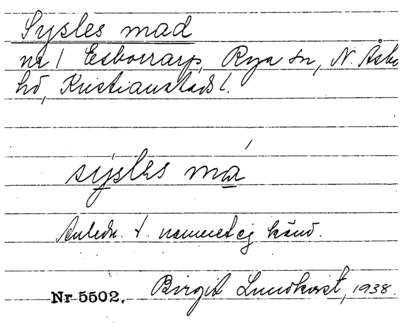 Sysles mad
nr 1 Esborrarp, Rya sn, N. Åsbo
hd, Kristianstads l.
sysles má
Anledn. t. namnet ej känd.
Nr 5502. Birgit Lundkvist, 1938.